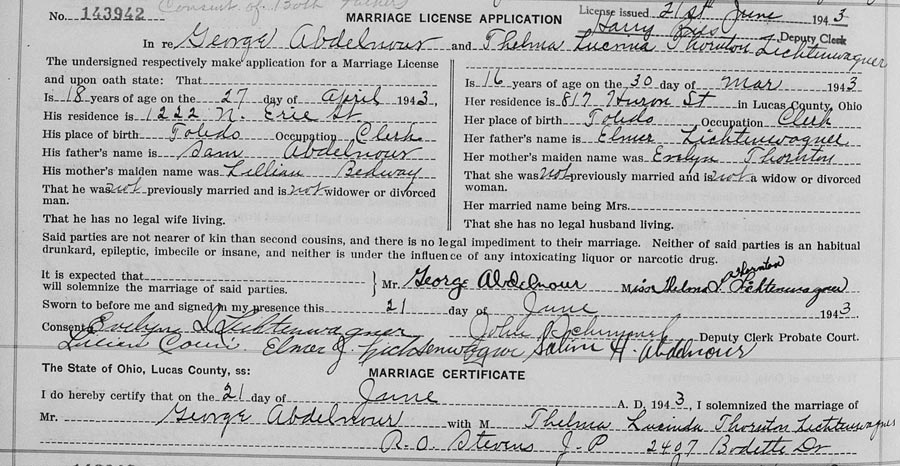 Consent of Both Fathers
No. 143942 MARRIAGE LICENSE APPLICATION License issued 21st June 1943
Harry Deputy Clerk
In re George Abdelnour and Thelma Lucinda Thornton Lichtenwagner
The undersigned respectively make application for a Marriage License
and upon oath state: That
Is 18 years of age on the 27 day of April 1943,
His residence is 1222 N. Erie St.
His place of birth Toledo Occupation Clerk
His father's name is Sam Abdelnour
His mother's maiden name was Lillian Bedway
That he was not previously married and is not widower or divorced
man.
That he has no legal wife living.
Is 16 years of age on the 30 day of Mar 1943
Her residence is 817 Huron St in Lucas County, Ohio
Her place of birth Toledo Occupation Clerk
Her father's name is Elmer Lichtenwagner
Her mother's maiden name was Evelyn Thornton
That she was not previously married and is not a widow or divorced
woman.
Her married name being Mrs.
That she has no legal husband living.
Said parties are not nearer of kin than second cousins, and there is no legal impediment to their marriage. Neither of said parties is an habitual
drunkard, epileptic, imbecile or insane, and neither is under the influence of any intoxicating liquor or narcotic drug.
It is expected that
will solemnize the marriage of said parties.
Mr. George Abdelnour Miss Thelma L. Thornton Lichtenwagner
Sworn to before me and signed in my presence this 21 day of June 1943
Consent Evelyn Lichtenwagner John Deputy Clerk Probate Court.
Elmer J. Lichtenwagner Salim H. Abdelnour
The State of Ohio, Lucas County, ss: MARRIAGE CERTIFICATE
I do hereby certify that on the 21 day of June A. D. 1943, I solemnized the marriage of
Mr. George Abdelnour with M Thelma Lucinda Thornton Lichtenwagner
R. O. Stevens J. P 2407 Bodette Dr
143942